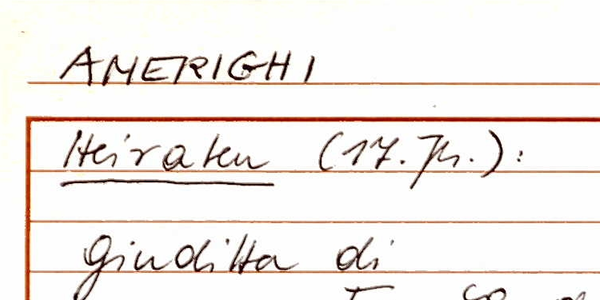 AMERIGHI
Heiraten (17. Jh.):
Giuditta di